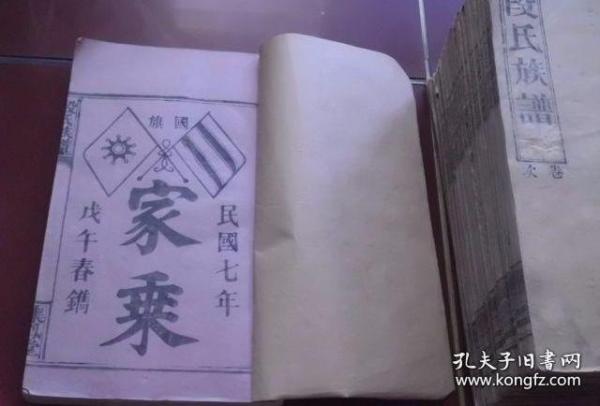 國旗
民國七年
家乗
戊午春鐫
段氏族譜
段氏族譜
卷次
孔夫子旧书网
www.kongfz.com